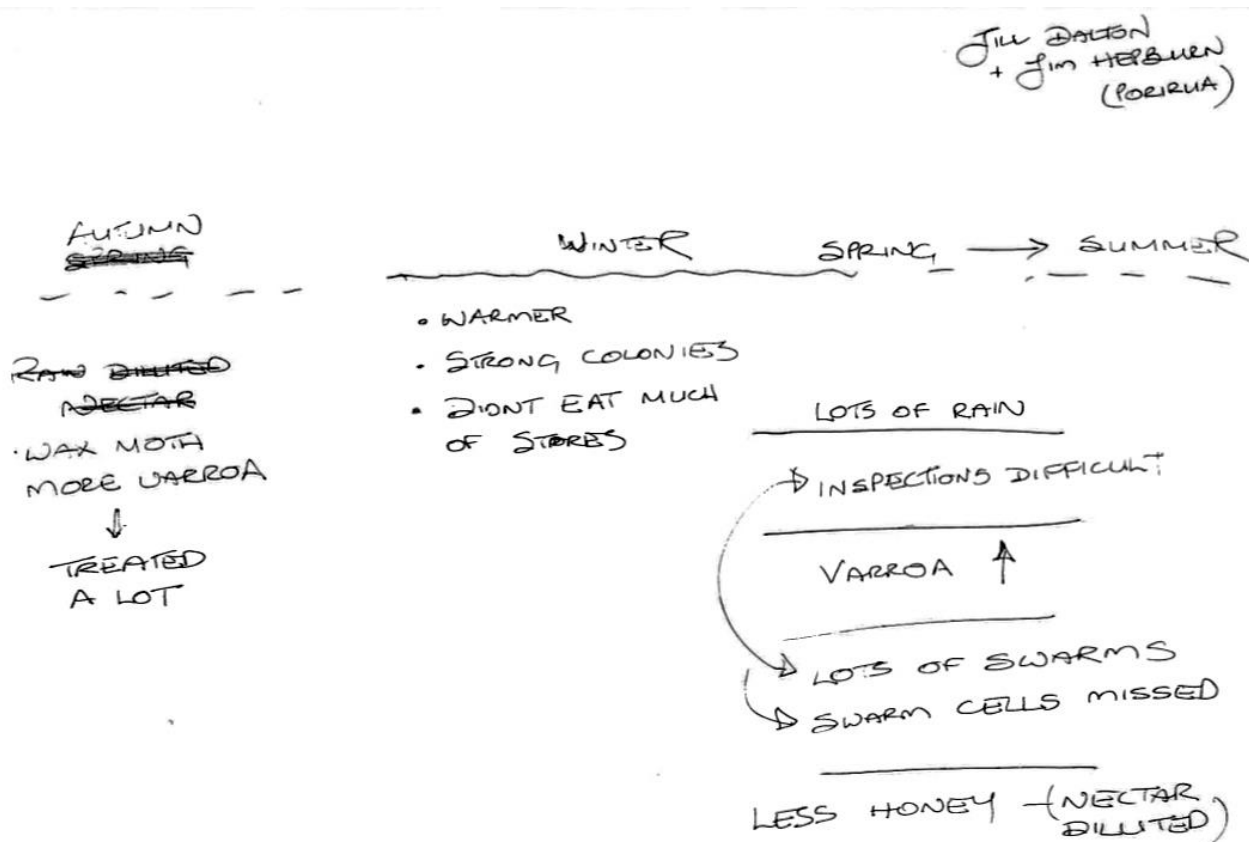 JILL DALTON
+ JIM HEPBURN
(PORIRUA)
AUTUMN
SPRING
WINTER
SPRING → SUMMER
RAW DILUTED
NECTAR
· WAX MOTH
MORE VARROA
↓
TREATED
A LOT
• WARMER
• STRONG COLONIES
• DIDNT EAT MUCH
OF STORES
LOTS OF RAIN
INSPECTIONS DIFFICULT
VARROA ↑
LOTS OF SWARMS
SWARM CELLS MISSED
LESS HONEY - (NECTAR
DILUTED)